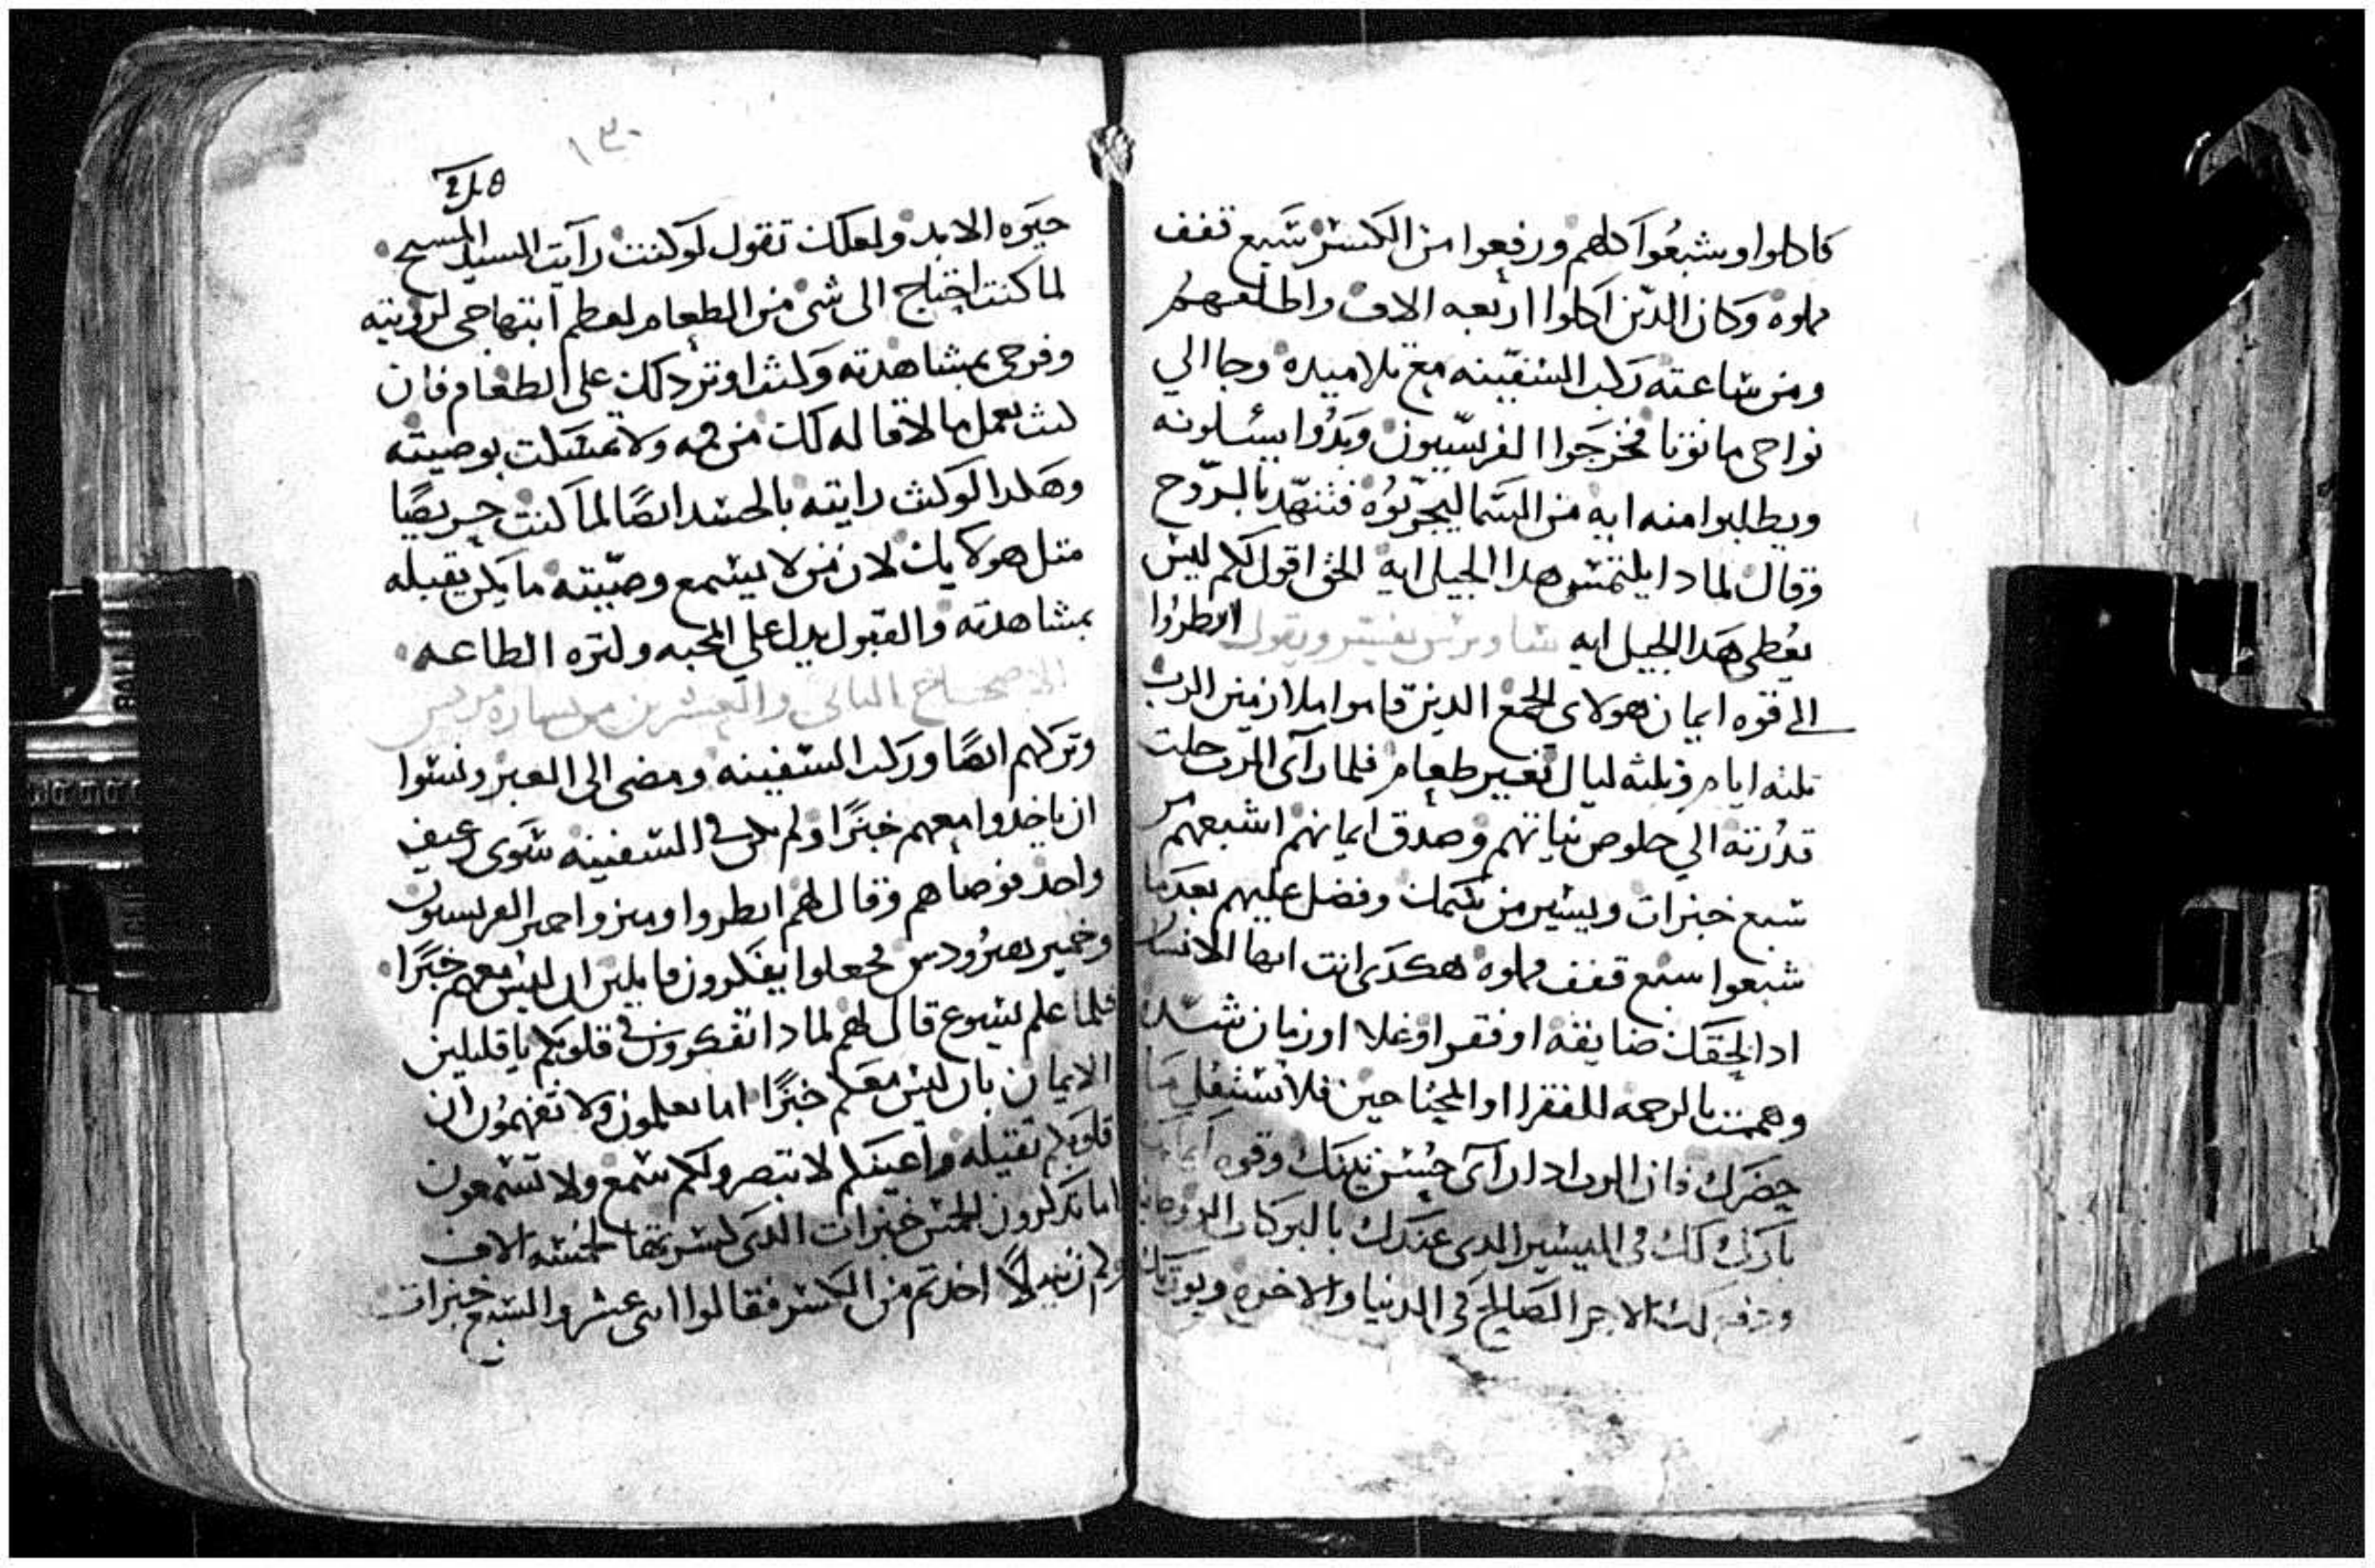 فاكلوا وشبعوا كلهم ورفعوا من الكسر سبع قفف
مملوه وكان الدين اكلوا اربعه الاف واطلقهم
ومن ساعته ركب السفينه مع تلاميده وجا الي
نواحي مانونا فخرجوا الفريسيون وبدوا يسلونه
ويطلبوا منه ايه من السما ليجربوه فتنهد بالروح
وقال لمادا يلتمس هدا الجيل ايه الحق اقول لكم ليس
يعطي هدا الجيل ايه ساويرس يفسر ويقول انظروا
الي قوه ايمان هولاي الجمع الدين قاموا ملازمين الرب
تلته ايام وتلته ليال بغير طعام فلما راى الرب جلت
قدرته الي خلوص نياتهم وصدق ايمانهم اشبعهم من
سبع خبزات ويسير من سمك وفضل عليهم بعدما
شبعوا سبع قفف مملوه هكدى انت ايها الانسان
ادا لحقك ضايقه او فقر او غلا او زمان شده
وهممت بالرحمه للفقرا او المحتاجين فلا تستقل ما
حضرك فان الرب ادا راى حسن نيتك وقوه ايمانك
بارك لك في اليسير الدى عندك بالبركات الروحانيه
لك الاجر الصالح في الدنيا والاخره ويورتك
٢٤٥
١٣٠
حيوه الابد ولعلك تقول لو كنت رايت السيد المسيح
لما كنت احتاج الى شى من الطعام لعظم ابتهاجي لرويته
وفرحي بمشاهدته ولست اوتر دلك على الطعام فان
كنت تعمل ما لا قاله لك من فمه ولا تمسكت بوصيته
وهكدا لو كنت رايته بالجسد ايضا لما كنت حريصا
متل هولايك لان من لا يسمع وصيته ما يكن يقبله
بمشاهدته والقبول يدل على المحبه وكتره الطاعه
الاصحاح التاني والعشرين من بشاره مرقس
وتركهم ايضا وركب السفينه ومضى الى العبر ونسوا
ان ياخدوا معهم خبزا ولم يكن في السفينه سوى رغيف
واحد فوصاهم وقال لهم انظروا وميزوا خمير الفريسيون
وخمير هيرودس فجعلوا يفكرون قايلين ان ليس معهم خبزا
فلما علم يسوع قال لهم لمادا تفكرون في قلوبكم يا قليلين
الايمان بان ليس معكم خبزا اما تعلمون ولا تفهمون ان
قلوبكم تقيله واعينكم لا تبصر ولكم سمع ولا تسمعون
اما تدكرون الخمس خبزات الدى كسرتها لخمسه الاف
وكم زنبيلا اخدتم من الكسر فقالوا اتنى عشر والسبع خبزات